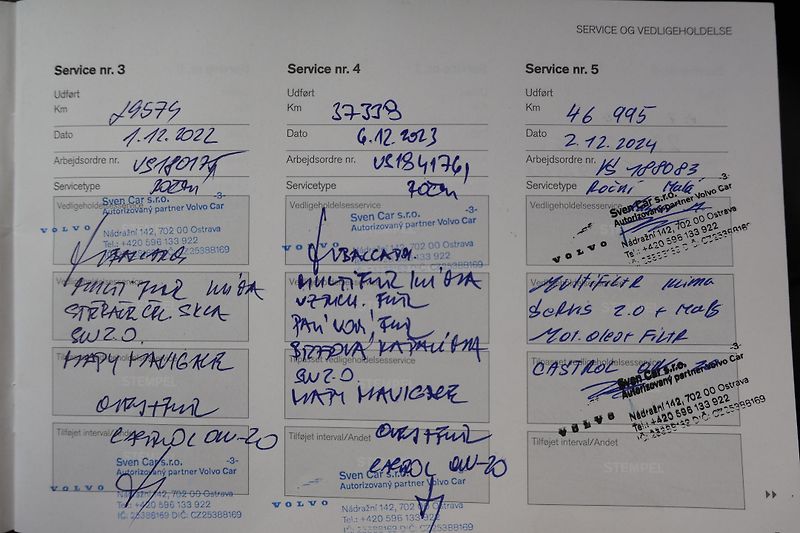 SERVICE OG VEDLIGEHOLDELSE
Service nr. 3
Udført
Km 29574
Dato 1.12.2022
Arbejdsordre nr. VS180175
Servicetype roční
Vedligeholdelsesservice
Sven Car s.r.o. -3-
Autorizovaný partner Volvo Car
VOLVO
Nádražní 142, 702 00 Ostrava
Tel.: +420 596 133 922
IČ: 25388169 DIČ: CZ25388169
SW 2.0
MAPY NAVIGACE
STEMPEL
OLEJ + FILTR
Tilføjet interval/Andet
CASTROL 0W-20
Sven Car s.r.o. -3-
Autorizovaný partner Volvo Car
VOLVO
Nádražní 142, 702 00 Ostrava
Tel.: +420 596 133 922
IČ: 25388169 DIČ: CZ25388169
Service nr. 4
Udført
Km 37339
Dato 6.12.2023
Arbejdsordre nr. VS184176
Servicetype roční
Vedligeholdelsesservice
Sven Car s.r.o. -3-
Autorizovaný partner Volvo Car
VOLVO
Nádražní 142, 702 00 Ostrava
Tel.: +420 596 133 922
IČ: 25388169 DIČ: CZ25388169
VZDUCH. FILTR
PALIVOVÝ FILTR
BRZDOVÁ KAPALINA
Tilpasset vedligeholdelsesservice
SW 2.0
MAPY NAVIGACE
OLEJ + FILTR
Tilføjet interval/Andet
CASTROL 0W-20
Sven Car s.r.o. -3-
Autorizovaný partner Volvo Car
VOLVO
Nádražní 142, 702 00 Ostrava
Tel.: +420 596 133 922
IČ: 25388169 DIČ: CZ25388169
Service nr. 5
Udført
Km 46 995
Dato 2.12.2024
Arbejdsordre nr. VS 188083
Servicetype Roční Malá
Vedligeholdelsesservice
Sven Car s.r.o. -3-
Autorizovaný partner Volvo Car
VOLVO
Nádražní 142, 702 00 Ostrava
Tel.: +420 596 133 922
IČ: 25388169 DIČ: CZ25388169
Multifiltr
Servis 2.0 +
Mot. olej + Filtr
CASTROL
Sven Car s.r.o. -3-
Autorizovaný partner Volvo Car
VOLVO
Nádražní 142, 702 00 Ostrava
Tel.: +420 596 133 922
IČ: 25388169 DIČ: CZ25388169
Tilføjet interval/Andet
STEMPEL